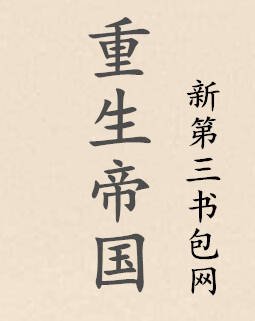 重生帝国
新第三书包网